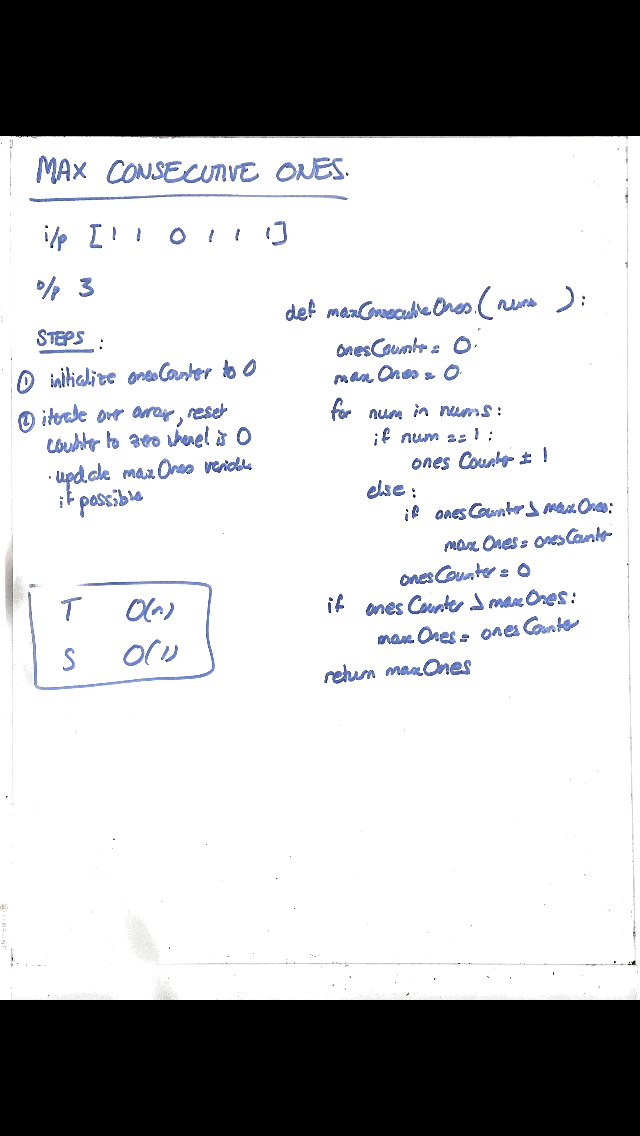 MAX CONSECUTIVE ONES.
i/p [1 1 0 1 1 1]
o/p 3
STEPS :
① initialize onesCounter to 0
② iterate over array, reset
counter to zero when el is 0
· update maxOnes variable
if possible
T O(n)
S O(1)
def maxConsecutiveOnes (nums ) :
onesCounter = 0
maxOnes = 0
for num in nums :
if num == 1 :
onesCounter += 1
else :
if onesCounter > maxOnes :
maxOnes = onesCounter
onesCounter = 0
if onesCounter > maxOnes :
maxOnes = onesCounter
return maxOnes